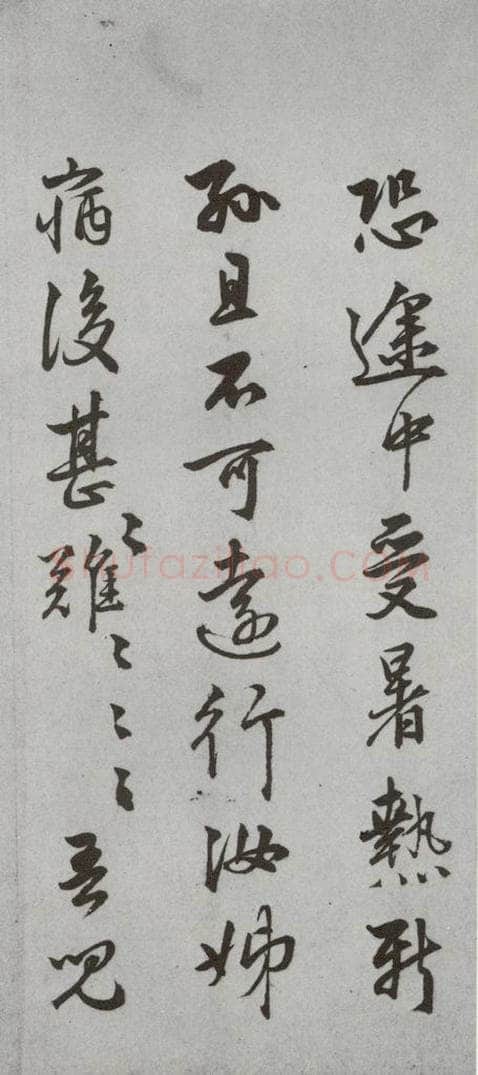 恐途中受暑熱新
孫且不可遠行汝姊
病後甚難〻〻〻〻吾兒
shufaziliao.COM